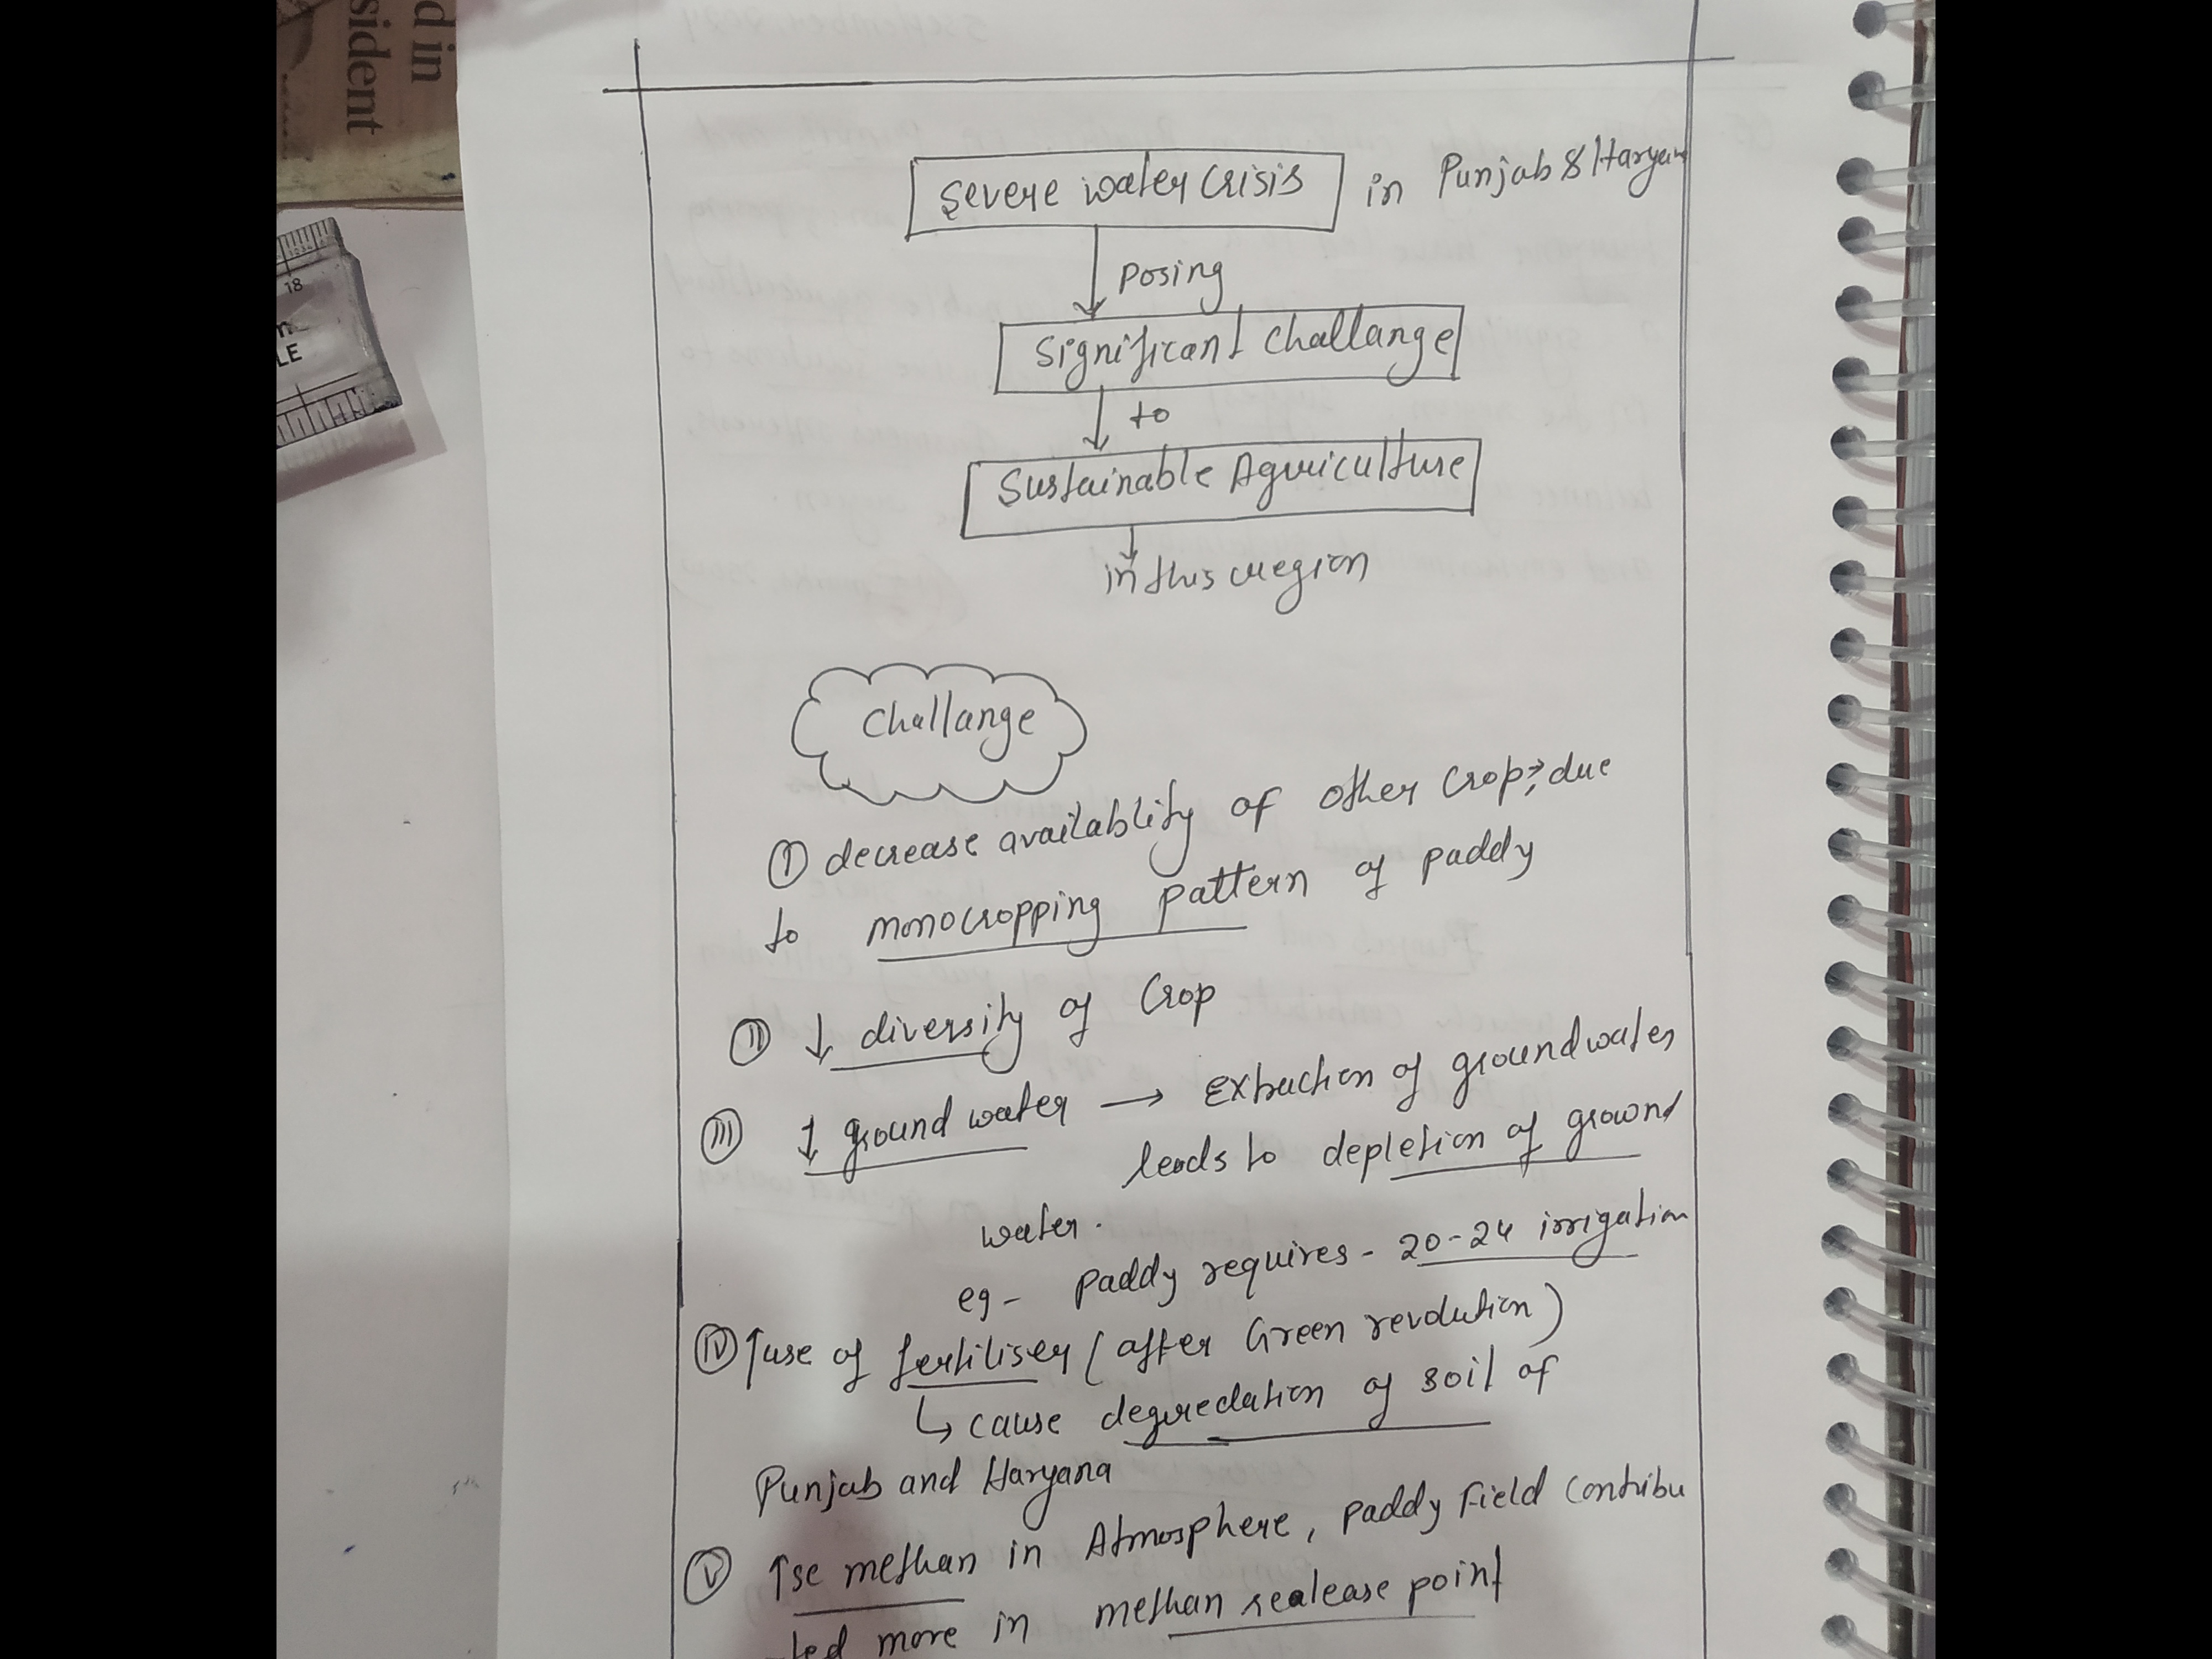 d in
sident
18
LE
Severe water crisis in Punjab & Haryan
posing
Significant challange
to
Sustainable Agriculture
in this region
Challange
(I) decrease availablity of other crop, due
to monocropping pattern of paddy
(II) ↓ diversity of Crop
(III) ↓ ground water → extraction of groundwater
leads to depletion of ground
water.
eg - paddy requires - 20-24 irrigation
(IV) ↑ use of fertiliser (after Green revolution)
↳ cause degredation of soil of
Punjab and Haryana
(V) ↑se methan in Atmosphere, paddy Field contribu
ted more in methan realease point